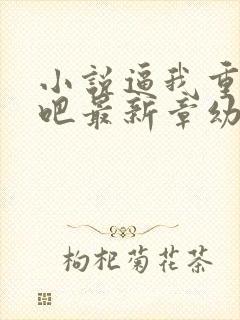 小说逼我重
吧最新章幼
枸杞菊花茶